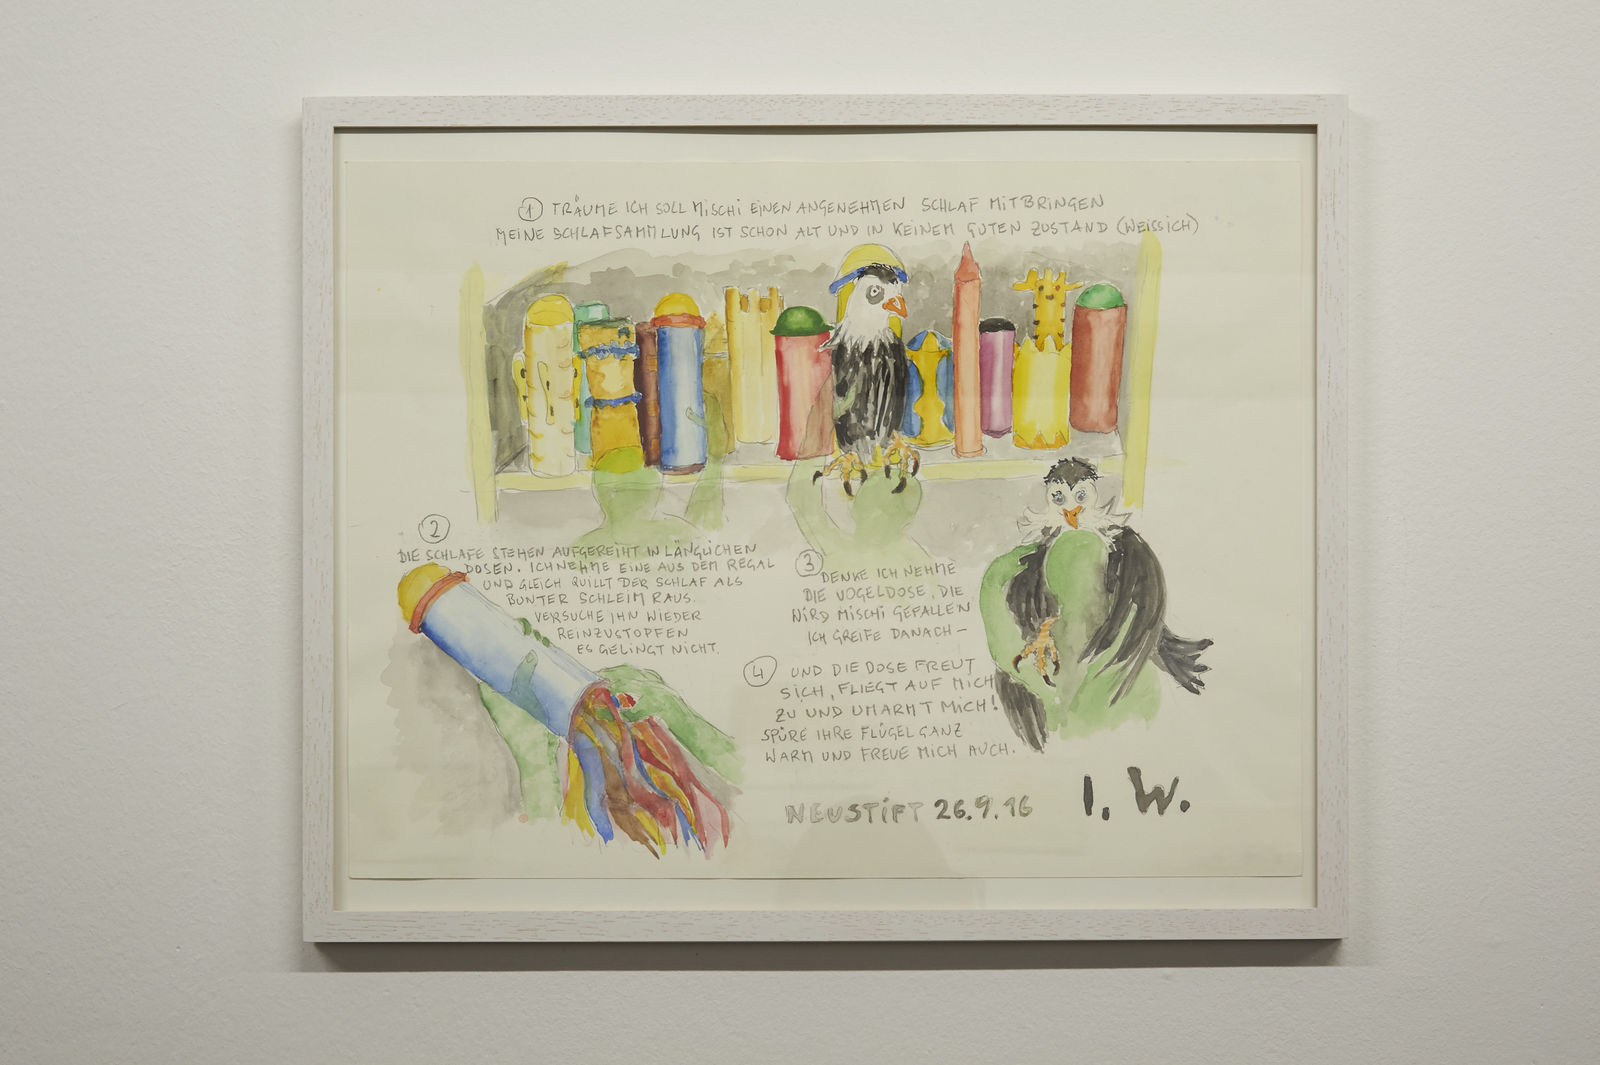 1 TRÄUME ICH SOLL MISCHI EINEN ANGENEHMEN SCHLAF MITBRINGEN
MEINE SCHLAFSAMMLUNG IST SCHON ALT UND IN KEINEM GUTEN ZUSTAND (WEISS ICH)
2
DIE SCHLAFE STEHEN AUFGEREIHT IN LÄNGLICHEN
DOSEN. ICH NEHME EINE AUS DEM REGAL
UND GLEICH QUILLT DER SCHLAF ALS
BUNTER SCHLEIM RAUS.
VERSUCHE IHN WIEDER
REINZUSTOPFEN
ES GELINGT NICHT.
3 DENKE ICH NEHME
DIE VOGELDOSE, DIE
WIRD MISCHI GEFALLEN
ICH GREIFE DANACH –
4 UND DIE DOSE FREUT
SICH, FLIEGT AUF MICH
ZU UND UMARMT MICH!
SPÜRE IHRE FLÜGEL GANZ
WARM UND FREUE MICH AUCH.
NEUSTIFT 26.9.16
I. W.